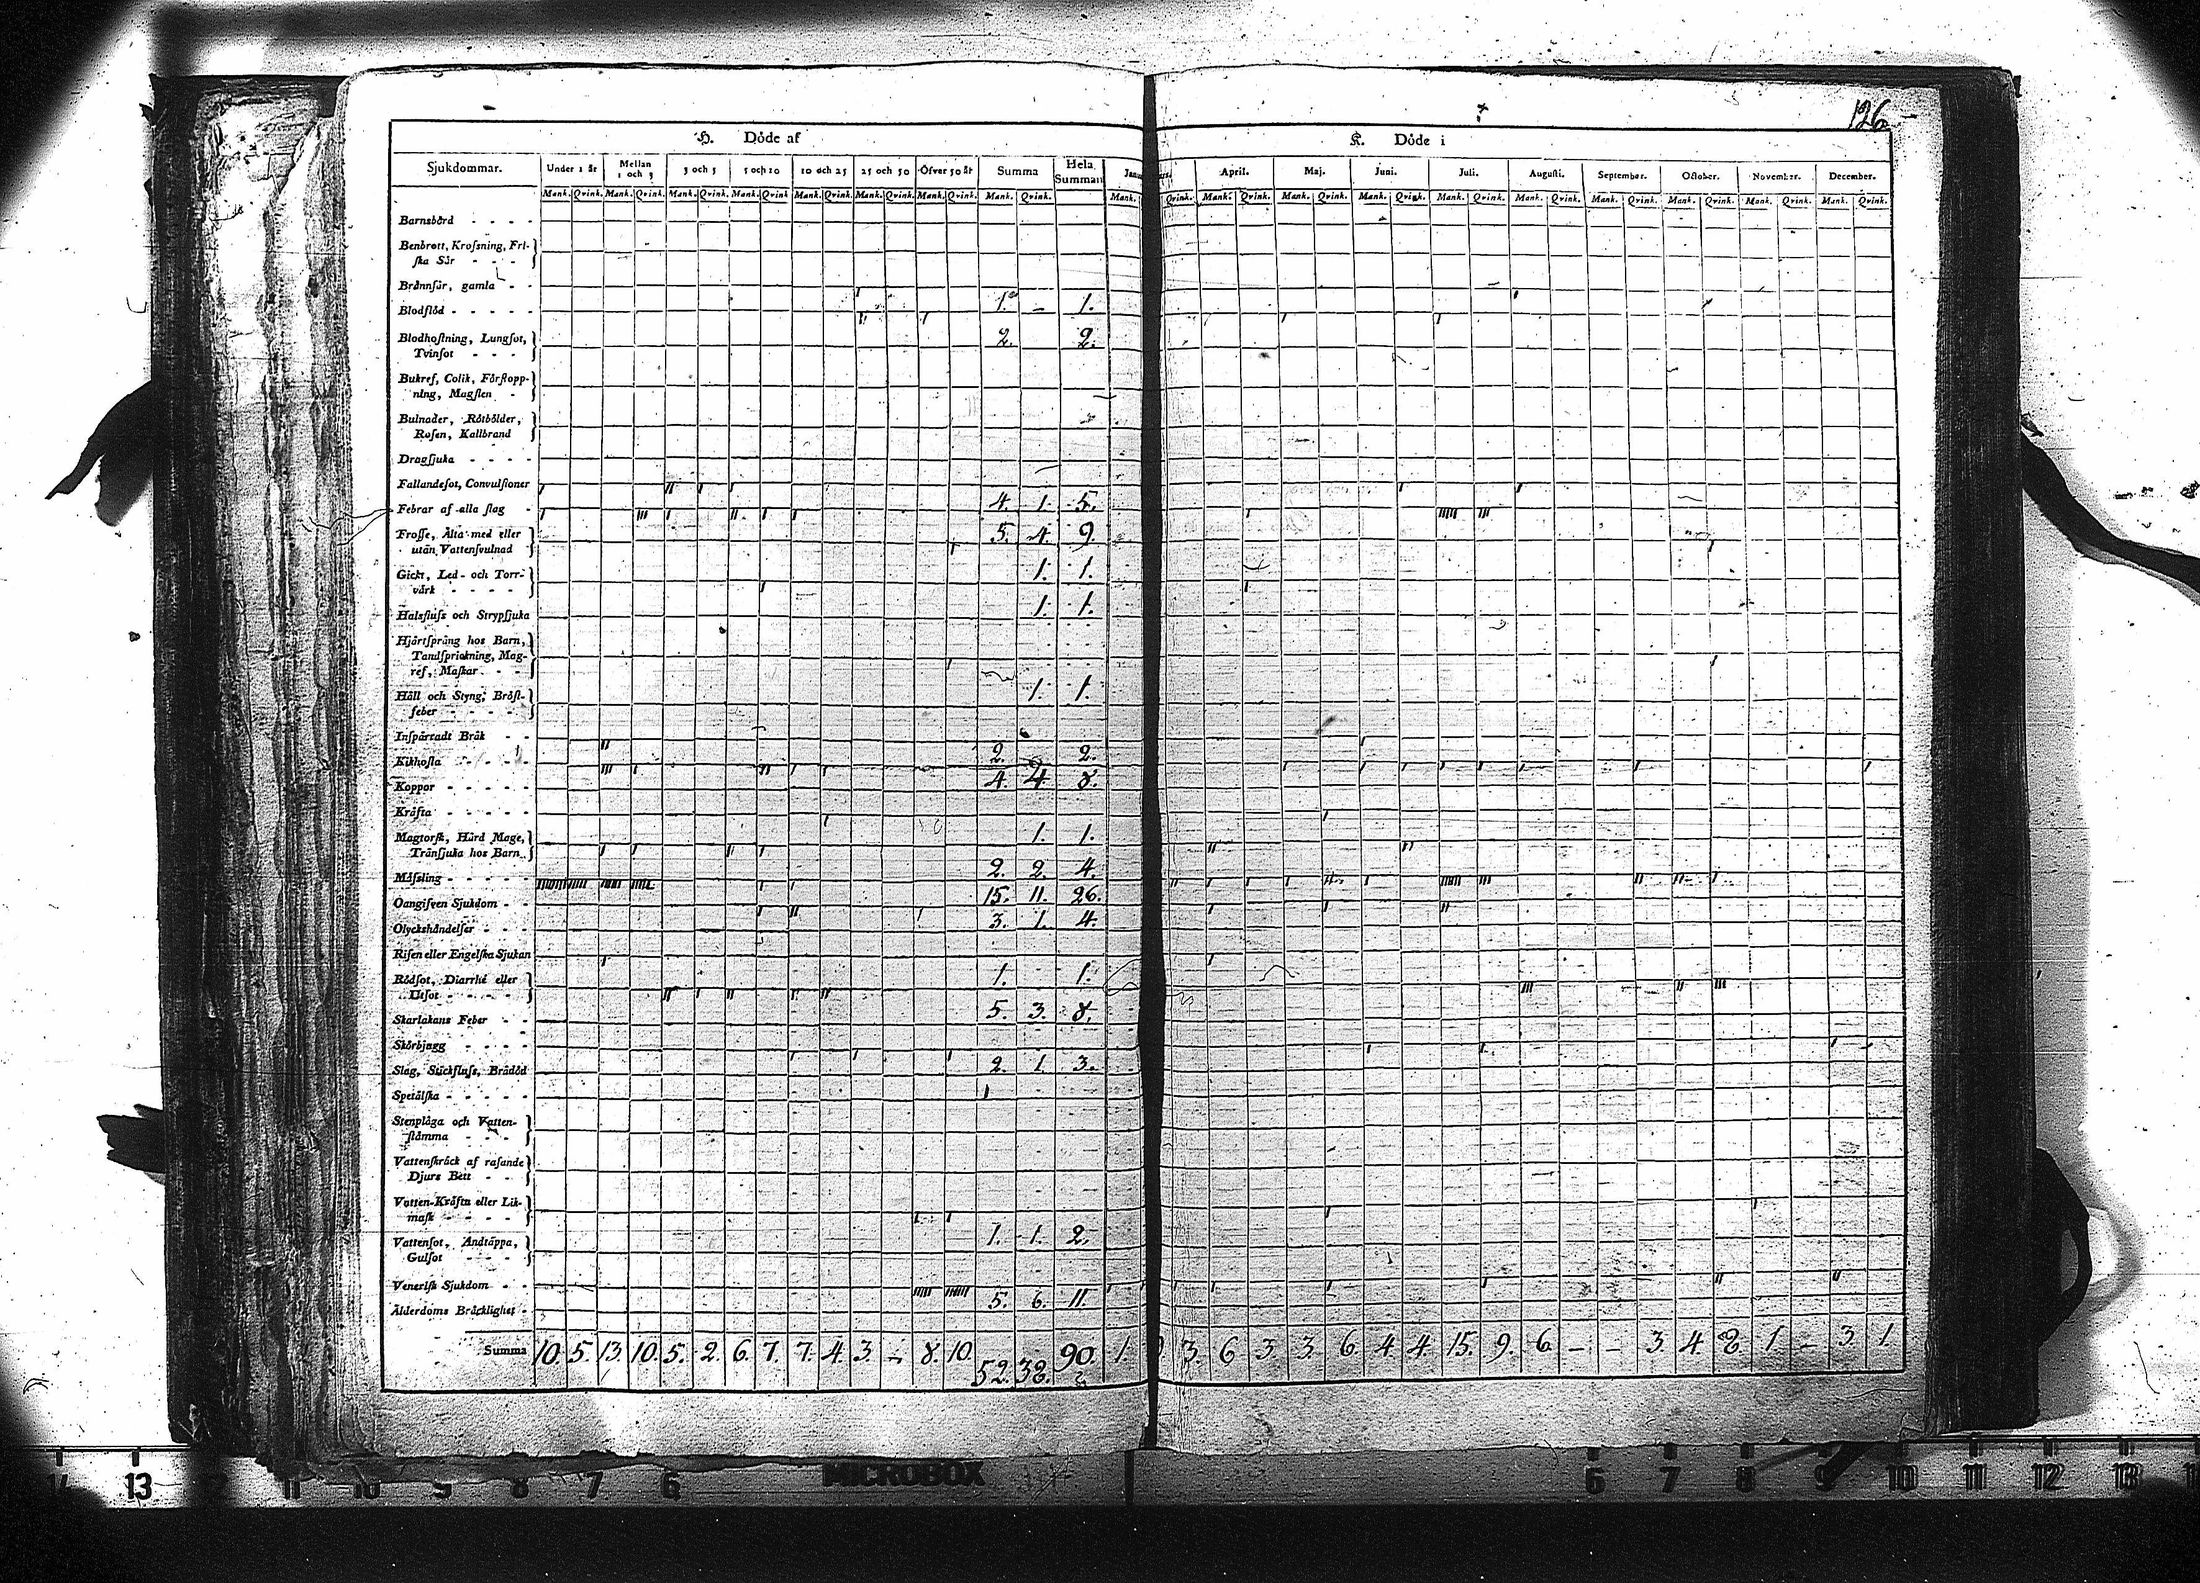 126
H. Döde af
K. Döde i
Sjukdommar. Under 1 år Mellan 1 och 3 3 och 5 5 och 10 10 och 25 25 och 50 Öfver 50 år Summa Hela Summan
April. Maj. Juni. Juli. Augusti. September. October. November. December.
Mank. Qvink. Mank. Qvink. Mank. Qvink. Mank. Qvink. Mank. Qvink. Mank. Qvink. Mank. Qvink. Mank. Qvink. Mank.
Qvink. Mank. Qvink. Mank. Qvink. Mank. Qvink. Mank. Qvink. Mank. Qvink. Mank. Qvink. Mank. Qvink. Mank. Qvink. Mank. Qvink.
Barnsbörd - - - -
Benbrott, Krossning, Fri-
ska Sår - - -
Brännsår, gamla - -
1. – 1.
Blodflöd - - - - -
2. 2.
Blodhostning, Lungsot,
Tvinsot - - -
Bukref, Colik, Förstopp-
ning, Magsten -
Bulnader, Rötbölder,
Rosen, Kallbrand
Dragsjuka - - - -
Fallandesot, Convulsioner
4. 1. 5.
Febrar af alla slag -
5. 4. 9.
Frosse, Älta med eller
utan Vattensvulnad
1. 1.
Gickt, Led- och Torr-
värk - - - -
1. 1.
Halsfluss och Strypsjuka
Hjärtsprång hos Barn,
Tandsprickning, Mag-
ref, Maskar - -
1. 1.
Håll och Styng, Bröst-
feber - - - - -
Inspärradt Bråk - -
2. 2.
Kikhosta - - - - -
4. 4. 8.
Koppor - - - - -
Kräfta - - - - -
1. 1.
Magtorsk, Hård Mage,
Tränsjuka hos Barn
2. 2. 4.
Mässling - - - - -
15. 11. 26.
Oangifven Sjukdom - -
3. 1. 4.
Olyckshändelser - - -
Risen eller Engelska Sjukan
1. 1.
Rödsot, Diarrhé eller
Utsot - - - - -
5. 3. 8.
Skarlakans Feber - -
Skörbjugg - - - -
2. 1. 3.
Slag, Stickfluss, Brådöd
Spetälska - - - - -
Stenplåga och Vatten-
stämma - - -
Vattenskräck af rasande
Djurs Bett - -
Vatten-Kräfta eller Lik-
mask - - - -
1. 1. 2.
Vattensot, Andtäppa,
Gulsot - - - -
Venerisk Sjukdom - -
5. 6. 11.
Ålderdoms Bräcklighet -
Summa 10. 5. 13. 10. 5. 2. 6. 7. 7. 4. 3. – 8. 10. 52. 38. 90. 1.
3. 6. 3. 3. 6. 4. 4. 15. 9. 6. – – 3. 4. 8. 1. – 3. 1.
14 13 12 11 10 9 8 7 6 MICROBOX 6 7 8 9 10 11 12 13